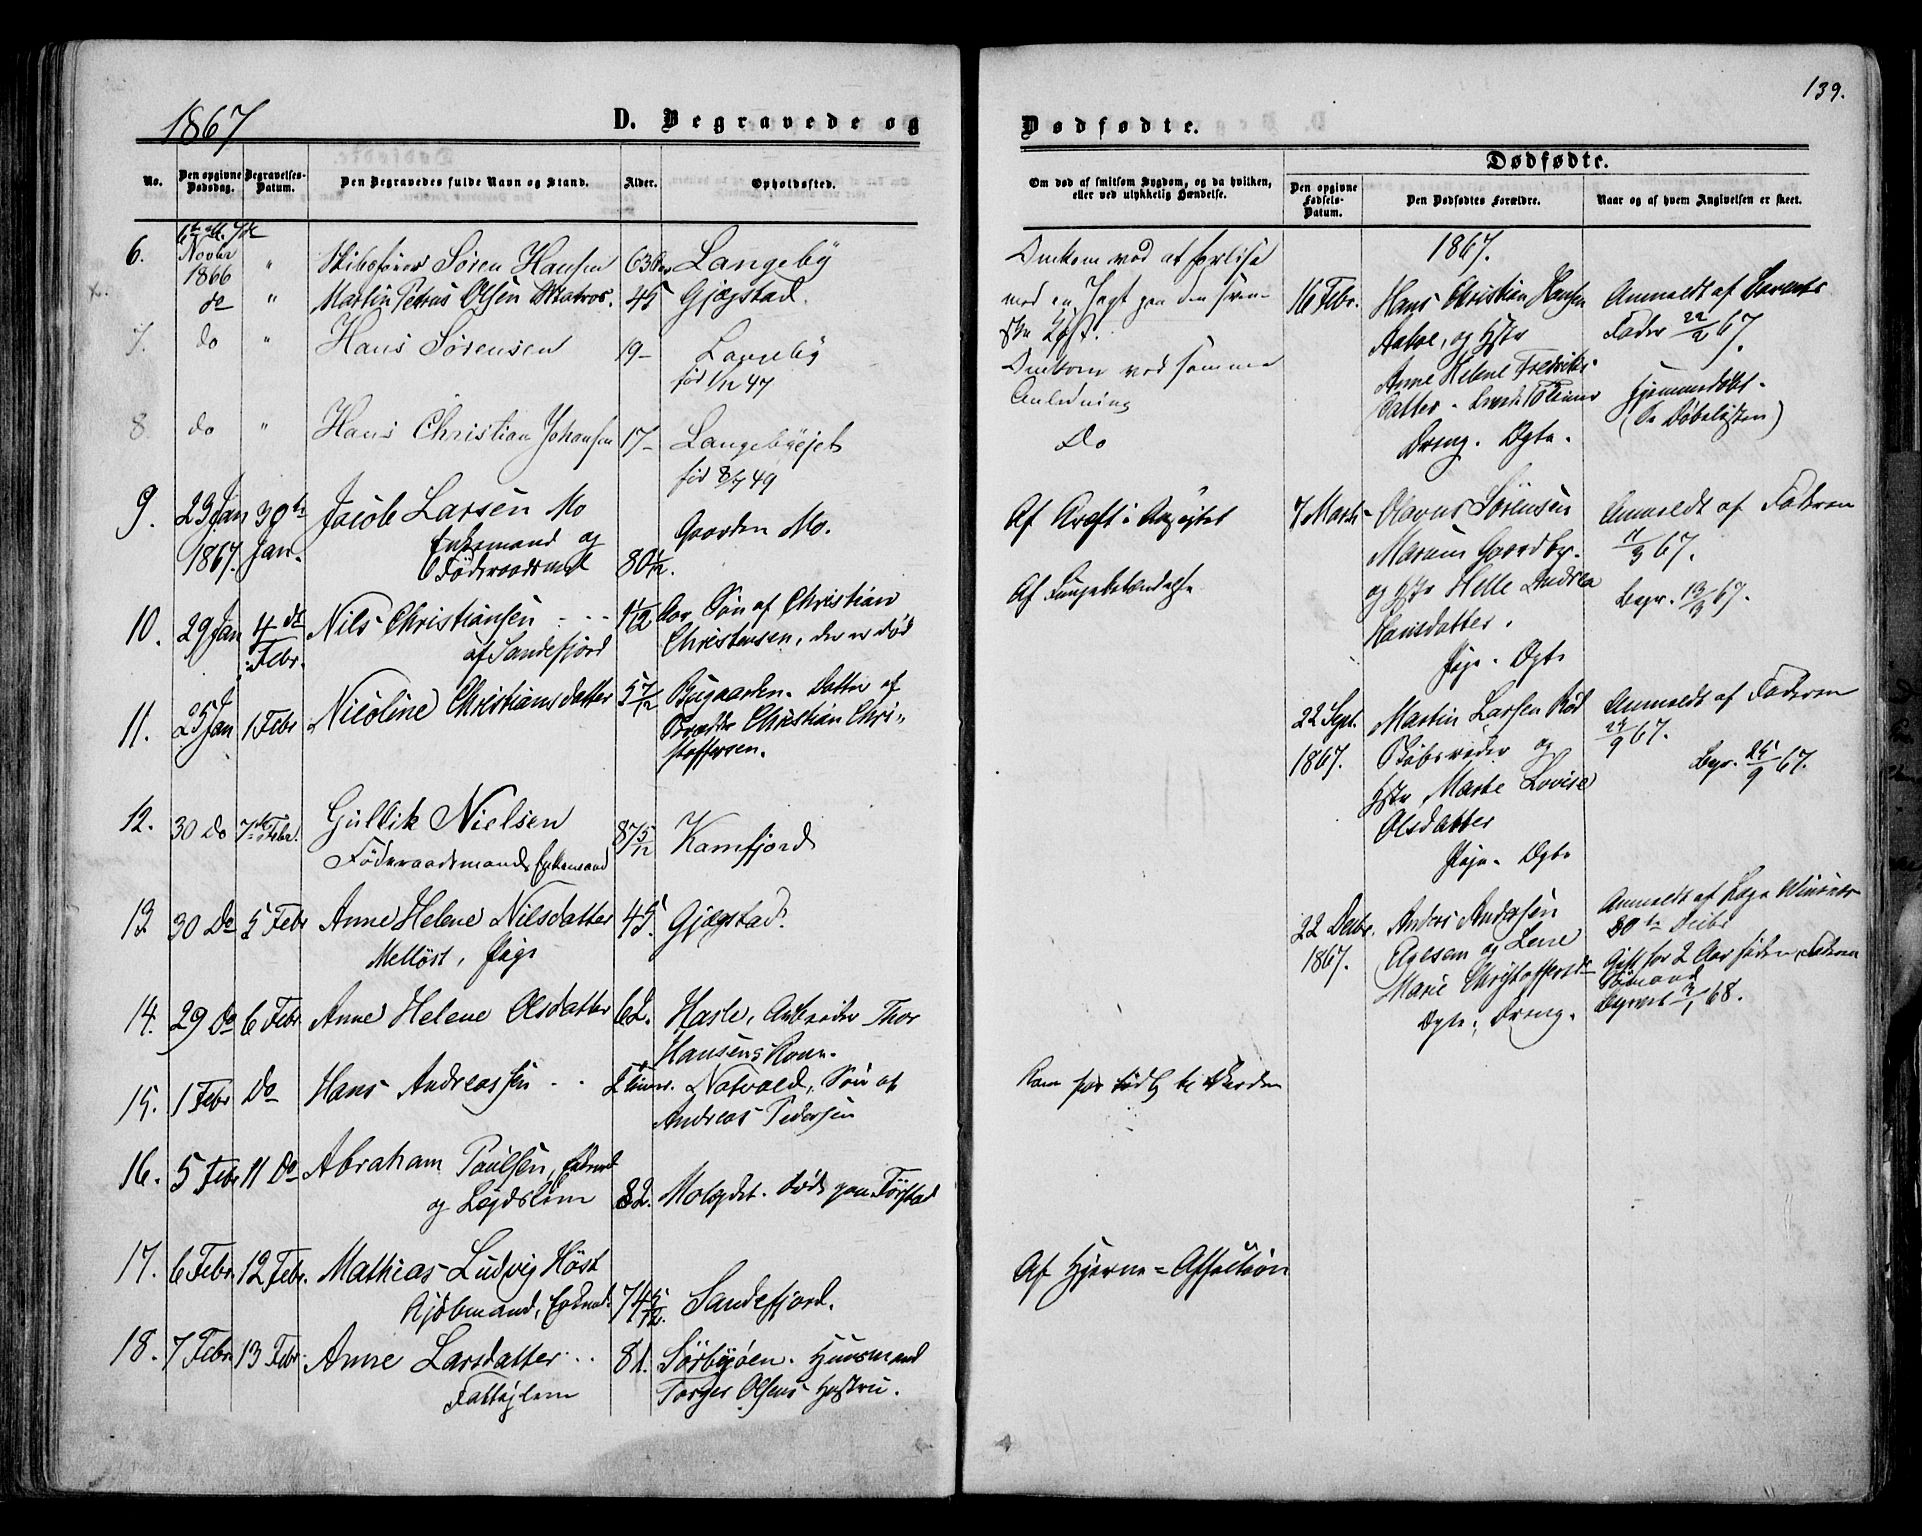 1867
D. Begravede og
No.
Den opgivne Dødsdag.
Begravelses-Datum.
Den Begravedes fulde Navn og Stand.
Alder.
Opholdssted.
6. Novbr 1866 " Skibsfører Søren Hansen 63 Langeby
do " Martin Petrus Olsen Matros. 45 Gjøgstad.
7. do " Hans Sørensen 19 - Langeby
før 1/12 47
8 do " Hans Christian Johansen 17 - Langebyejet
før 8/7 49
9. 23 Jan 1867. 30te Jan. Jacob Larsen Mo Gaarden Mo.
Enkemand og
Føderaadsmd 80 1/2.
10. 29 Jan 4de Febr. Nils Christiansen - - - 1/12 Aar Søn af Christian
af Sandefjord Christensen, der er død
11. 25 Jan 1 Febr Nicoline Christiansdatter 5 7/12 Bugaarden. Datter af
Christian Chri-
stoffersen.
12. 30 do 7de Febr. Gullik Nielsen 87 5/12 Kamfjord
Føderaadsmand, Enkemand
13. 30 Do 5 Febr Anne Helene Nilsdatter 45. Gjøgstad.
Melløst, Pige
14. 29 Do 6 Febr Anne Helene Olsdatter 62. Hasle, Arbeider Thor
Hansens Kone.
15. 1 Febr Do Hans Andreassen - - 2 Timer. Natvald, Søn af
Andreas Pedersen
16. 5 Febr 11 Do Abraham Paulsen, Enkemd
og Lægdslem 82. Moløgdet. Døde paa Førstad
17. 6 Febr. 12 Febr. Mathias Ludvig Høst
Kjøbmand, Enkemd. 74 5/12. Sandefjord.
18. 7 Febr. 13 Febr Anne Larsdatter - - 81. Sørbyøen. Huusmand
Fattiglem Torger Olsens Hustru.
139.
Dødfødte.
Om død af smitsom Sygdom, og da hvilken, eller ved ulykkelig Hændelse.
Dødfødte.
Den opgivne Fødsels-Datum.
Den Dødfødtes Forældre.
Naar og af hvem Angivelsen er skeet.
Omkom ved at forlise
med en Jagt paa den sven-
ske Kyst.
Omkom ved samme
Anledning
Do
Af Kræft i Ansigtet
Af Lungebetændelse
Kom for tidlig til Verden
Af Hjerne=Affection
1867.
16 Febr. Hans Christian Hansen
og Hstr
Anne Helene Fredriks-
datter -
Dreng. Ægte.
Anmeldt af Barnets
Fader 22/2 67.
Hjemmedøbt.
(Se Døbelisten)
7 Marts Olavus Sørensen
og Hstr Helle Andrea
Hansdatter.
Pige. Ægte
Anmeldt af Faderen
11/3 67.
Begr. 13/3 67.
22 Sept. 1867. Martin Larsen Rød
og
Hstr Marte Lovise
Olsdatter
Pige. Ægte
Anmeldt af Faderen
24/9 67.
Begr. 25/9 67.
22 Decbr. 1867. Anders Andersen
og Lene
Marie Christoffersdr
Ægte. Dreng.
Anmeldt af
30te Decbr
Gift for 2 Aar siden, Faderen
Sømand
Begravet 3/1 68.